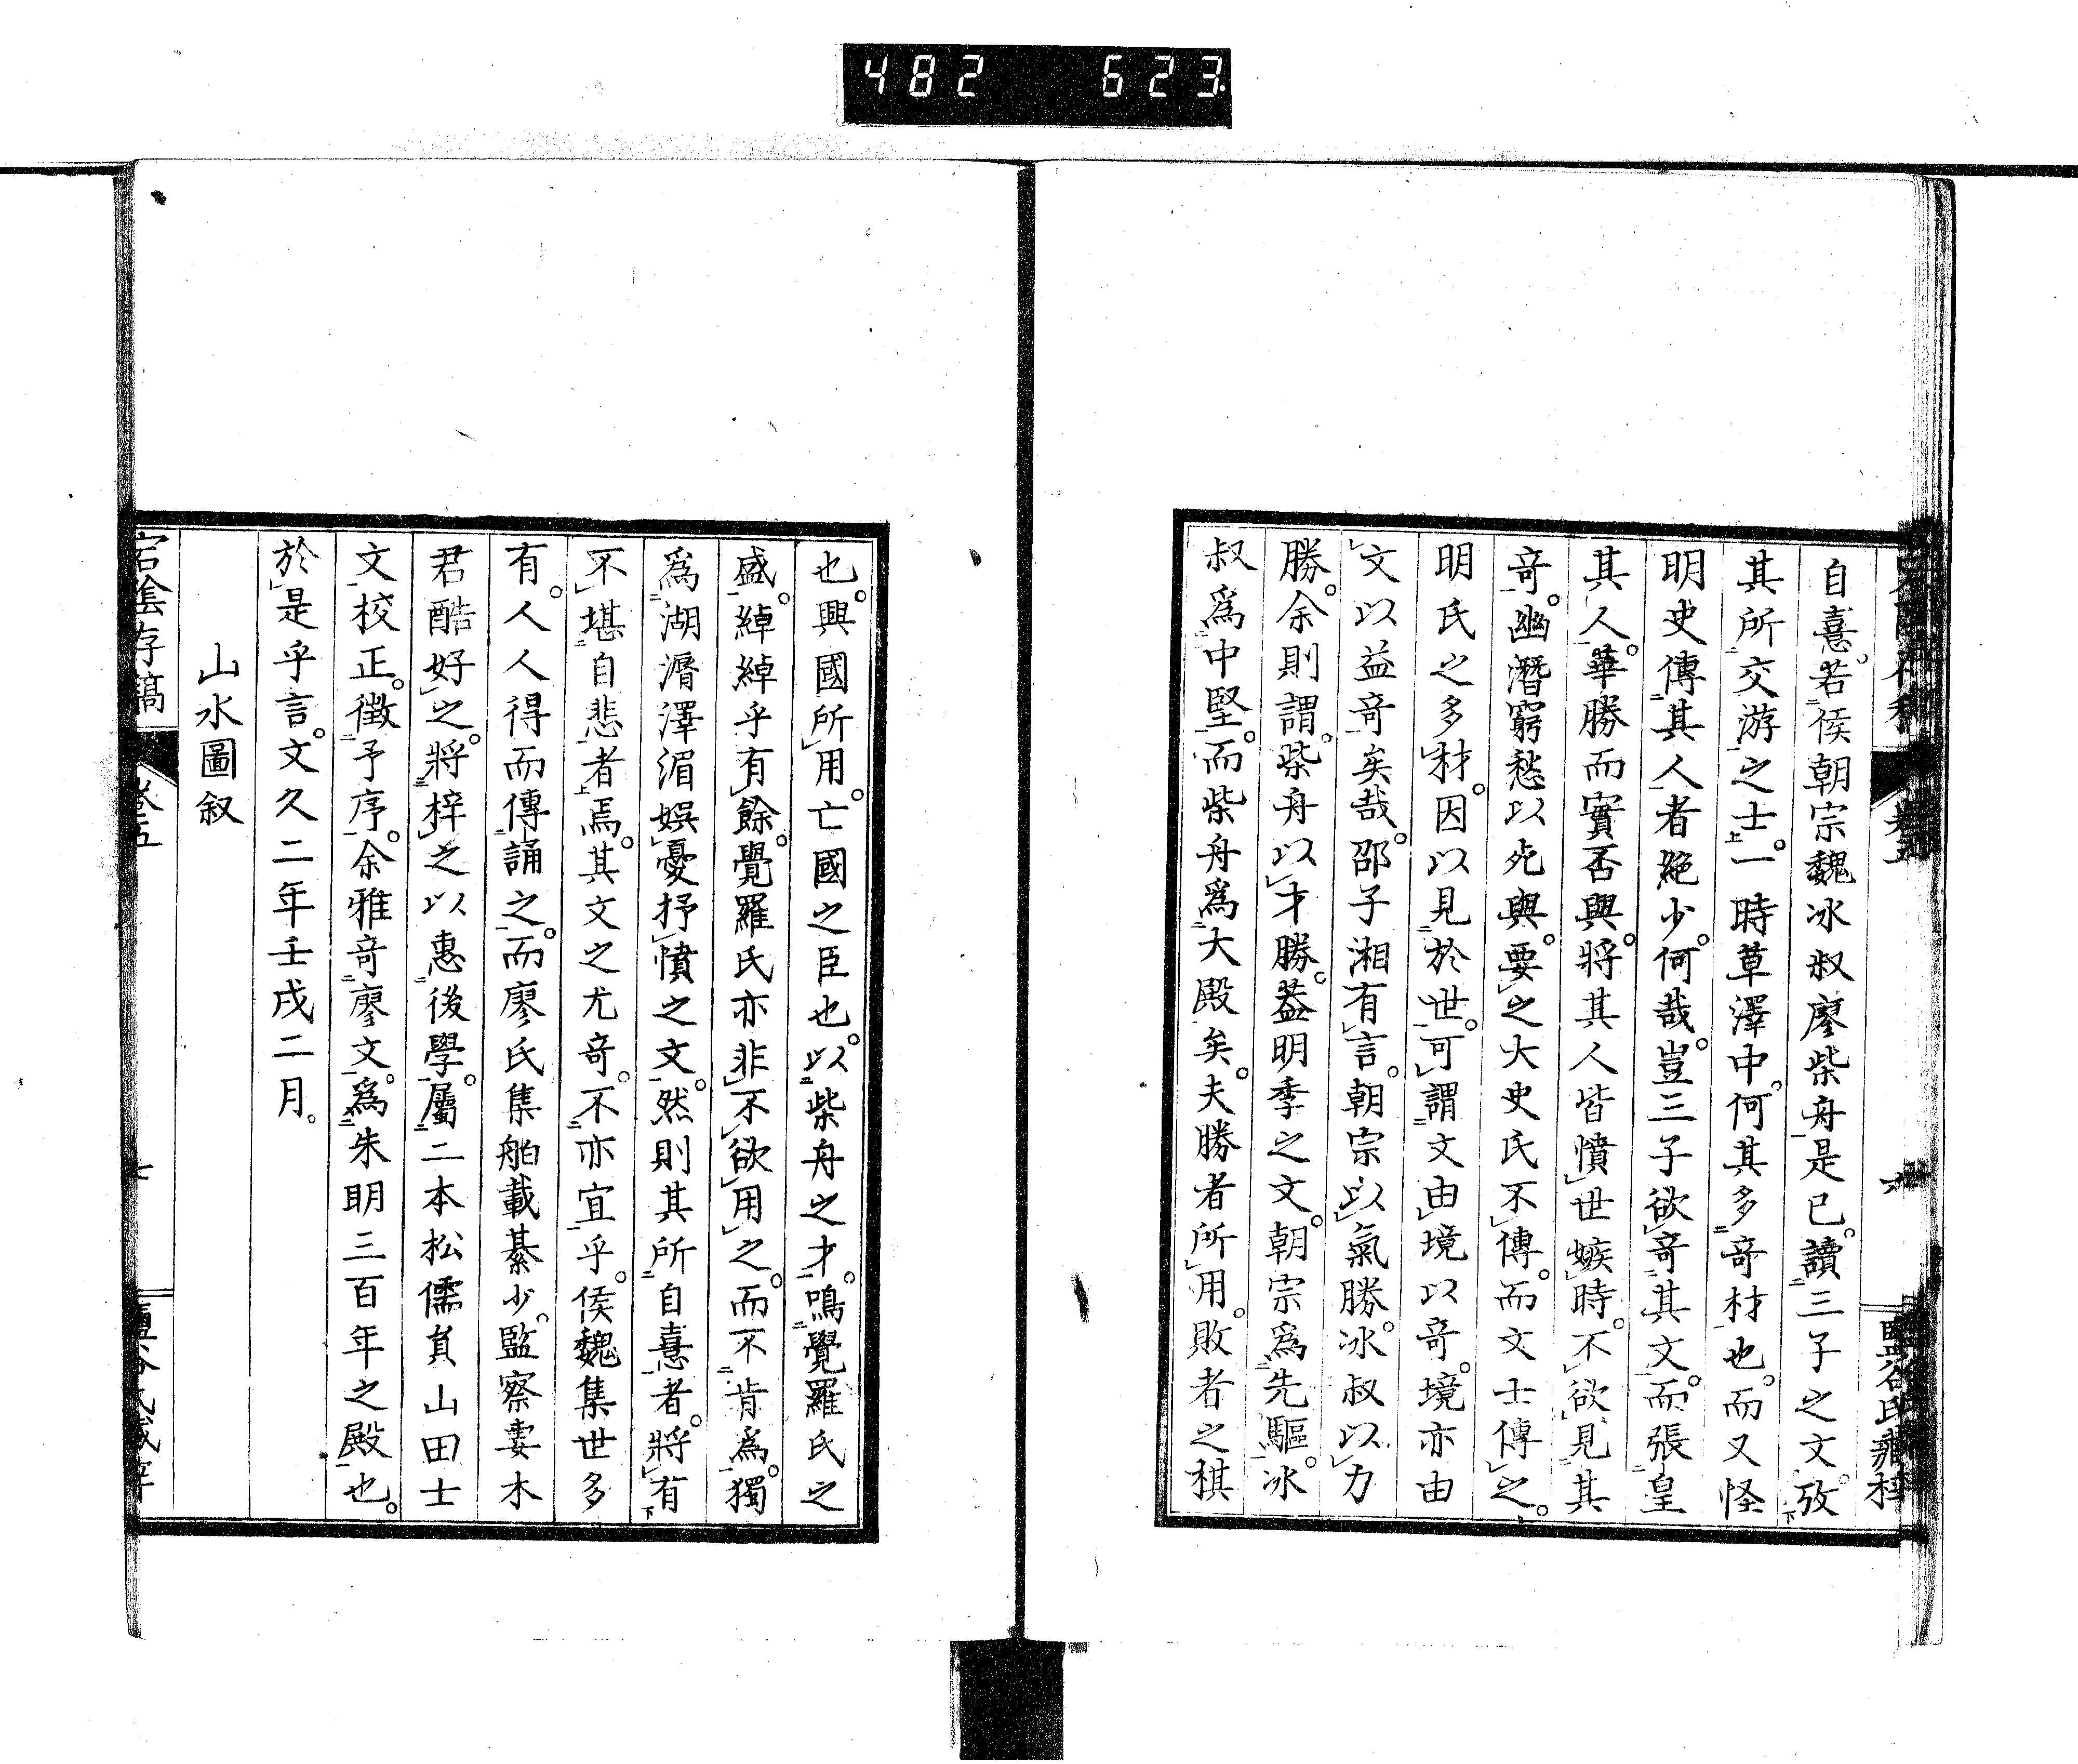 482 623
自憙。若侯朝宗魏冰叔廖柴舟是已。讀三子之文。攷
其所交游之士。一時草澤中。何其多竒材也。而又怪
明史傳其人者絶少。何哉。豈三子欲竒其文。而張皇
其人。華勝而實否與。將其人皆憤世嫉時。不欲見其
竒。幽潛窮愁以死與。要之大史氏不傳。而文士傳之。
明氏之多材。因以見於世。可謂文由境以竒。境亦由
文以益竒矣哉。邵子湘有言。朝宗以氣勝。冰叔以力
勝。余則謂。柴舟以才勝。葢明季之文。朝宗爲先驅。冰
叔爲中堅。而柴舟爲大殿矣。夫勝者所用。敗者之棋
也。興國所用。亡國之臣也。以柴舟之才。鳴覺羅氏之
盛。綽綽乎有餘。覺羅氏亦非不欲用之。而不肯爲。獨
爲湖漘澤湄娯憂抒憤之文。然則其所自憙者。將有
不堪自悲者焉。其文之尤竒。不亦宜乎。侯魏集世多
有。人人得而傳誦之。而廖氏集舶載綦少。監察妻木
君酷好之。將梓之以惠後學。屬二本松儒員山田士
文校正。徵予序。余雅竒廖文。爲朱明三百年之殿也。
於是乎言。文久二年壬戌二月。
山水圖叙
宕陰存稿
卷五